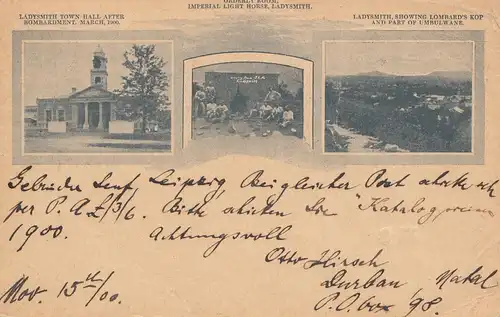 ORDERLY ROOM,
IMPERIAL LIGHT HORSE, LADYSMITH.
LADYSMITH TOWN HALL AFTER
BOMBARDMENT. MARCH, 1900.
LADYSMITH, SHOWING LOMBARDS KOP
AND PART OF UMBULWANE.
Gebrüder Senf, Leipzig, Bei gleicher Post schicke ich
per P. A. £/3/6. Bitte schicken Sie "Katalog
1900. Achtungsvoll
Otto Hirsch
Durban Natal
Nov. 15th/00. P.O. box 98.